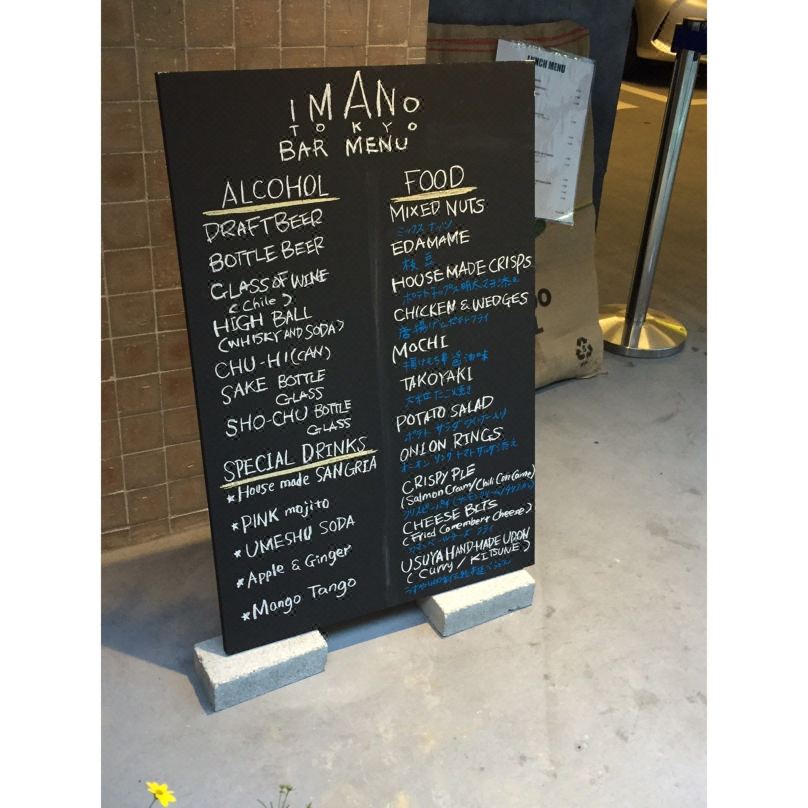 IMANo
TOKYO
BAR MENU
ALCOHOL
DRAFT BEER
BOTTLE BEER
GLASS OF WINE
(Chile)
HIGH BALL
(WHISKY AND SODA)
CHU-HI (CAN)
SAKE BOTTLE
GLASS
SHO-CHU BOTTLE
GLASS
SPECIAL DRINKS
★House made SANGRIA
★PINK mojito
★UMESHU SODA
★Apple & Ginger
★Mango Tango
FOOD
MIXED NUTS
ミックスナッツ
EDAMAME
枝豆
HOUSE MADE CRISPS
CHICKEN & WEDGES
MOCHI
TAKOYAKI
大粒たこ焼き
POTATO SALAD
ポテトサラダ
ONION RINGS
CRISPY PIE
(Salmon Cream/Chili Con Carne)
CHEESE BITS
(Fried Camembert Cheese)
カマンベールチーズフライ
USUYA HAND-MADE UDON
(Curry/KITSUNE)
LUNCH MENU